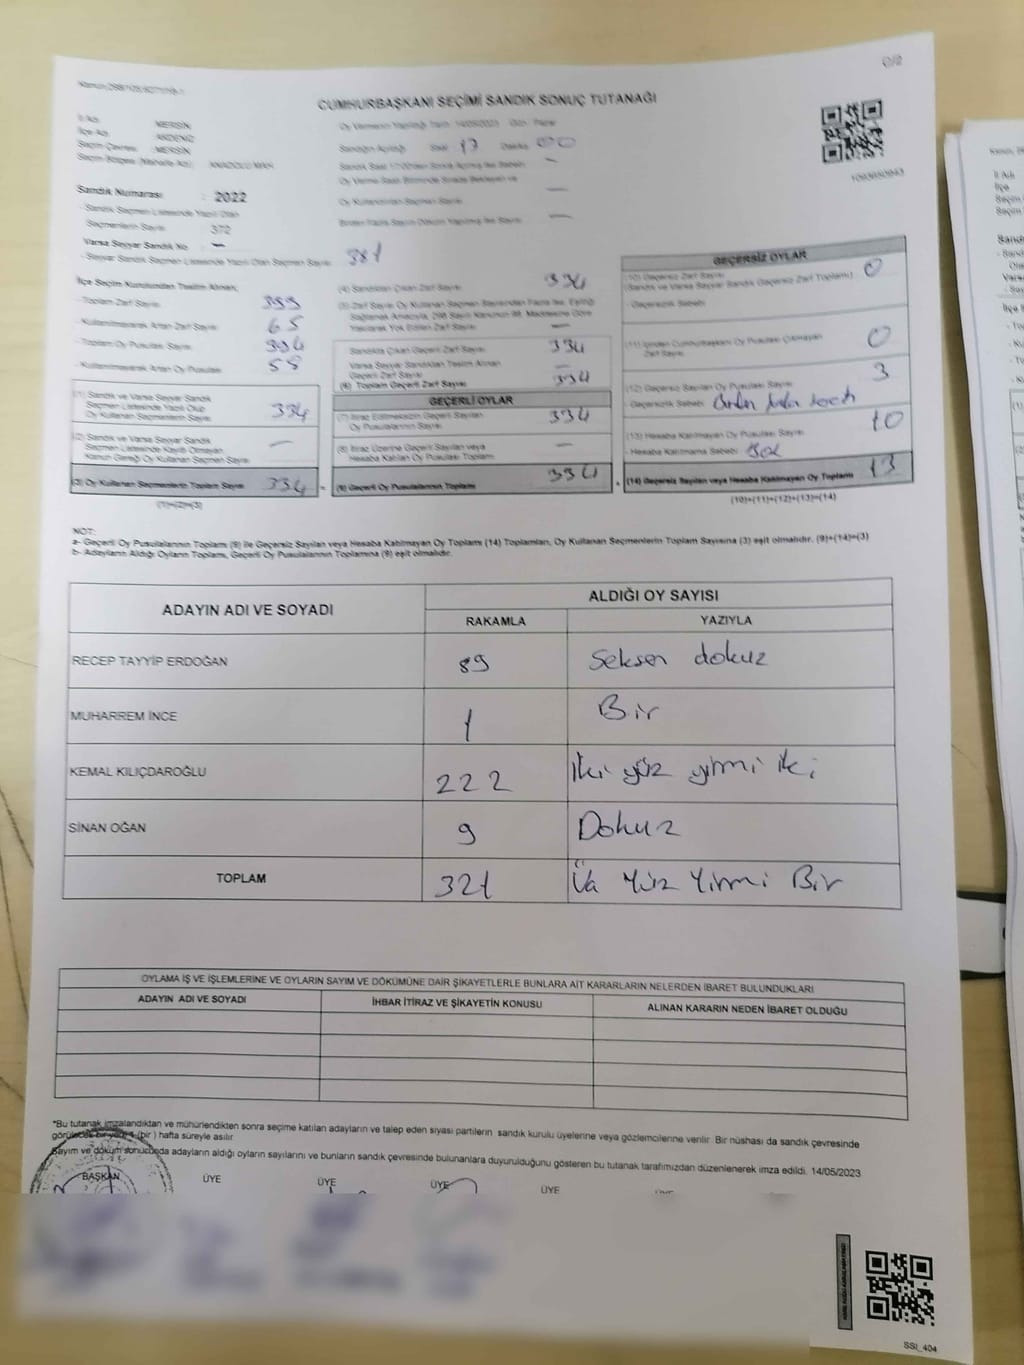 C/2
CUMHURBAŞKANI SEÇİMİ SANDIK SONUÇ TUTANAĞI
İl Adı : MERSİN
İlçe Adı : AKDENİZ
Seçim Çevresi : MERSİN
Seçim Bölgesi (Mahalle Adı) : ANADOLU MAH.
Oy Vermenin Yapıldığı Tarih: 14/05/2023 Gün: Pazar
Sandığın Açıldığı Saat 17 Dakika 00
Sandık Numarası : 2022
- Sandık Seçmen Listesinde Yazılı Olan
Seçmenlerin Sayısı 372
Varsa Seyyar Sandık No : —
- Seyyar Sandık Seçmen Listesinde Yazılı Olan Seçmen Sayısı 381
İlçe Seçim Kurulundan Teslim Alınan;
- Toplam Zarf Sayısı
- Kullanılmayarak Artan Zarf Sayısı 65
- Toplam Oy Pusulası Sayısı
- Kullanılmayarak Artan Oy Pusulası
(1) Sandık ve Varsa Seyyar Sandık
Seçmen Listesinde Yazılı Olup
Oy Kullanan Seçmenlerin Sayısı 334
(2) Sandık ve Varsa Seyyar Sandık
Seçmen Listesinde Kaydı Olmayan
Kanun Gereği Oy Kullanan Seçmen Sayısı —
(3) Oy Kullanan Seçmenlerin Toplam Sayısı 334
(1)+(2)=(3)
(4) Sandıktan Çıkan Zarf Sayısı 334
Sandıkta Çıkan Geçerli Zarf Sayısı 334
Varsa Seyyar Sandıktan Teslim Alınan
Geçerli Zarf Sayısı —
(6) Toplam Geçerli Zarf Sayısı 334
GEÇERLİ OYLAR
(7) İtiraz Edilmeksizin Geçerli Sayılan
Oy Pusulalarının Sayısı 334
(8) İtiraz Üzerine Geçerli Sayılan veya
Hesaba Katılan Oy Pusulası Toplamı —
(9) Geçerli Oy Pusulalarının Toplamı 334
GEÇERSİZ OYLAR
(10) Geçersiz Zarf Sayısı 0
(Sandık ve Varsa Seyyar Sandık Geçersiz Zarf Toplamı)
- Geçersizlik Sebebi
(11) İçinden Cumhurbaşkanı Oy Pusulası Çıkmayan
Zarf Sayısı 0
(12) Geçersiz Sayılan Oy Pusulası Sayısı 3
- Geçersizlik Sebebi
(13) Hesaba Katılmayan Oy Pusulası Sayısı 10
- Hesaba Katılmama Sebebi
(14) Geçersiz Sayılan veya Hesaba Katılmayan Oy Toplamı 13
(10)+(11)+(12)+(13)=(14)
NOT:
a- Geçerli Oy Pusulalarının Toplamı (9) ile Geçersiz Sayılan veya Hesaba Katılmayan Oy Toplamı (14) Toplamları, Oy Kullanan Seçmenlerin Toplam Sayısına (3) eşit olmalıdır. (9)+(14)=(3)
b- Adayların Aldığı Oyların Toplamı, Geçerli Oy Pusulalarının Toplamına (9) eşit olmalıdır.
ADAYIN ADI VE SOYADI
ALDIĞI OY SAYISI
RAKAMLA YAZIYLA
RECEP TAYYİP ERDOĞAN 89 Seksen dokuz
MUHARREM İNCE 1 Bir
KEMAL KILIÇDAROĞLU 222 İki yüz yirmi iki
SİNAN OĞAN 9 Dokuz
TOPLAM 321 Üç Yüz Yirmi Bir
OYLAMA İŞ VE İŞLEMLERİNE VE OYLARIN SAYIM VE DÖKÜMÜNE DAİR ŞİKAYETLERLE BUNLARA AİT KARARLARIN NELERDEN İBARET BULUNDUKLARI
ADAYIN ADI VE SOYADI İHBAR İTİRAZ VE ŞİKAYETİN KONUSU ALINAN KARARIN NEDEN İBARET OLDUĞU
*Bu tutanak imzalandıktan ve mühürlendikten sonra seçime katılan adayların ve talep eden siyasi partilerin sandık kurulu üyelerine veya gözlemcilerine verilir. Bir nüshası da sandık çevresinde
görülecek bir yere 1 (bir ) hafta süreyle asılır.
Sayım ve döküm sonucunda adayların aldığı oyların sayılarını ve bunların sandık çevresinde bulunanlara duyurulduğunu gösteren bu tutanak tarafımızdan düzenlenerek imza edildi. 14/05/2023
BAŞKAN ÜYE ÜYE ÜYE ÜYE
SSİ_404